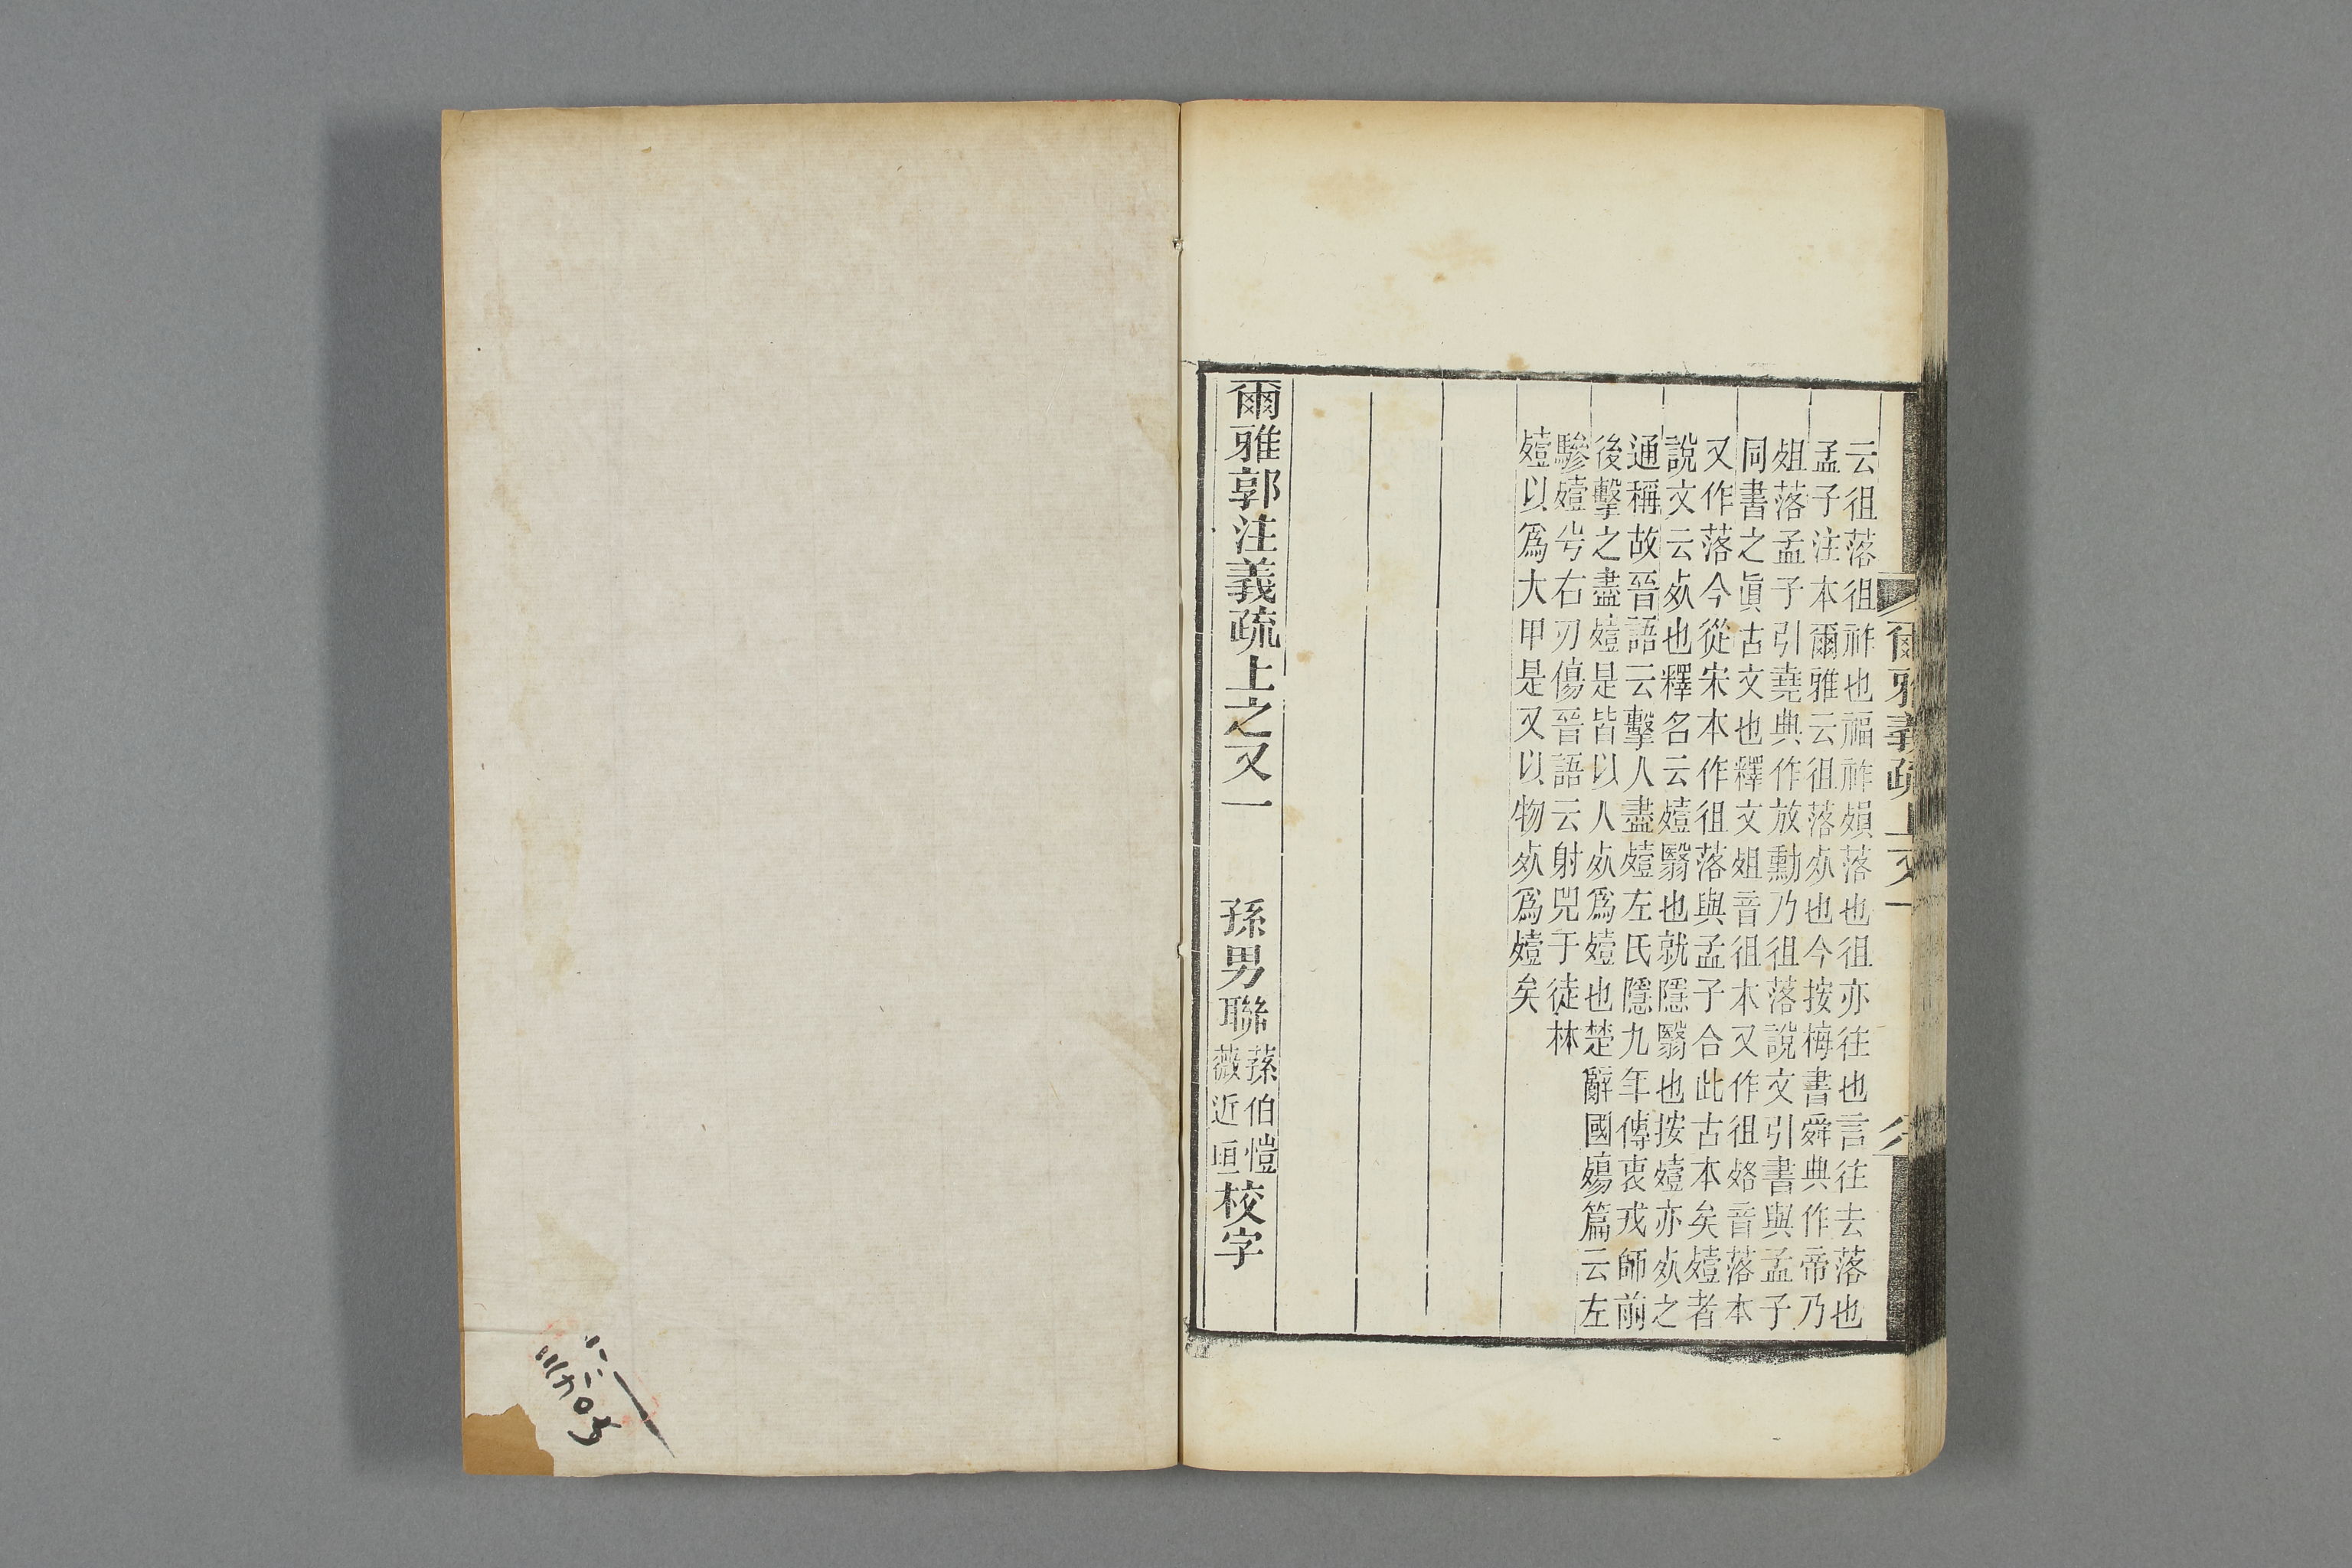 云徂落徂祚也福祚殞落也徂亦往也言往去落也
孟子注本爾雅云徂落𣦸也今按梅書舜典作帝乃
殂落孟子引堯典作放勳乃徂落說文引書與孟子
同書之眞古文也釋文殂音徂本又作徂㱠音落本
又作落今從宋本作徂落與孟子合此古本矣殪者
說文云𣦸也釋名云殪翳也就隱翳也按殪亦𣦸之
通稱故晉語云擊人盡殪左氏隱九年傳衷戎師前
後擊之盡殪是皆以人𣦸爲殪也楚辭國殤篇云左
驂殪兮右刃傷晉語云射兕于徒林
殪以爲大甲是又以物𣦸爲殪矣
爾雅郭注義疏上之又一 孫男聯蓀伯愷薇近垣校字
爾雅義疏上又一